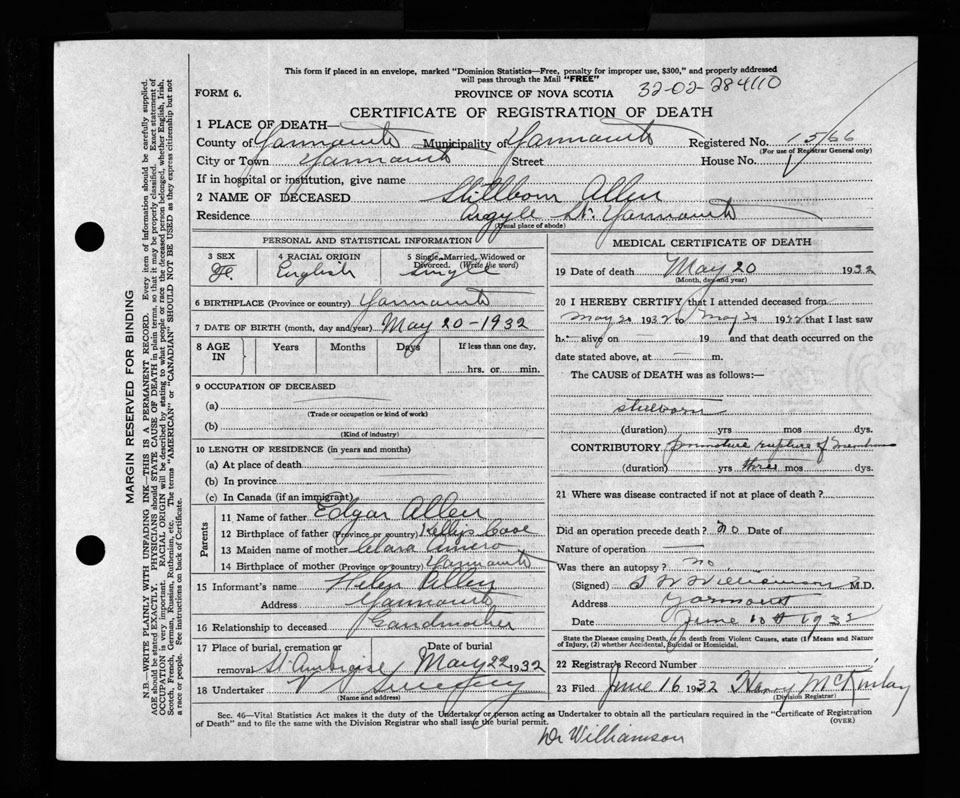 This form if placed in an envelope, marked "Dominion Statistics—Free, penalty for improper use, $300," and properly addressed
will pass through the Mail "FREE"
FORM 6.
PROVINCE OF NOVA SCOTIA 32-02-284110
CERTIFICATE OF REGISTRATION OF DEATH
1 PLACE OF DEATH—
County of Yarmouth Municipality of Yarmouth Registered No. 1566
(For use of Registrar General only)
City or Town Yarmouth Street House No.
If in hospital or institution, give name
2 NAME OF DECEASED Stillborn Allen
Residence Argyle St. Yarmouth
(Usual place of abode)
PERSONAL AND STATISTICAL INFORMATION
3 SEX 4 RACIAL ORIGIN 5 Single, Married, Widowed or
Divorced. (Write the word)
F. English Single
6 BIRTHPLACE (Province or country) Yarmouth
7 DATE OF BIRTH (month, day and year) May 20-1932
8 AGE IN Years Months Days If less than one day,
hrs. or min.
9 OCCUPATION OF DECEASED
(a)
(Trade or occupation or kind of work)
(b)
(Kind of industry)
10 LENGTH OF RESIDENCE (in years and months)
(a) At place of death
(b) In province
(c) In Canada (if an immigrant)
Parents
11 Name of father Edgar Allen
12 Birthplace of father (Province or country) Kelly's Cove
13 Maiden name of mother Clara Amero
14 Birthplace of mother (Province or country) Yarmouth
15 Informant's name Helen Allen
Address Yarmouth
16 Relationship to deceased Grandmother
17 Place of burial, cremation or Date of burial
removal St Ambroise May 22 1932
18 Undertaker V
(Name and address)
MEDICAL CERTIFICATE OF DEATH
19 Date of death May 20 1932
(Month, day and year)
20 I HEREBY CERTIFY that I attended deceased from
May 20 1932 to May 20 1932 that I last saw
h alive on 19 and that death occurred on the
date stated above, at — m.
The CAUSE of DEATH was as follows:—
stillborn
(duration) yrs mos dys.
CONTRIBUTORY premature rupture of membrane
(duration) yrs three mos dys.
21 Where was disease contracted if not at place of death?
Did an operation precede death? no Date of
Nature of operation
Was there an autopsy? no
(Signed) S W Williamson M.D.
Address Yarmouth
Date June 10th 1932
State the Disease causing Death, or in death from Violent Causes, state (1) Means and Nature
of Injury, (2) whether Accidental, Suicidal or Homicidal.
22 Registrar's Record Number
23 Filed June 16 1932 Harry McKinlay
(Division Registrar)
Sec. 46—Vital Statistics Act makes it the duty of the Undertaker or person acting as Undertaker to obtain all the particulars required in the "Certificate of Registration
of Death" and to file the same with the Division Registrar who shall issue the burial permit. (OVER)
Dr Williamson
MARGIN RESERVED FOR BINDING
N.B.—WRITE PLAINLY WITH UNFADING INK—THIS IS A PERMANENT RECORD. Every item of information should be carefully supplied.
AGE should be stated EXACTLY. PHYSICIANS should STATE CAUSE OF DEATH in plain terms, so that it may be properly classified. Exact statement of
OCCUPATION is very important. RACIAL ORIGIN will be described by stating to what people or race the deceased person belonged, whether English, Irish,
Scotch, French, German, Russian, Ruthenian, etc. The terms "AMERICAN" or "CANADIAN" SHOULD NOT BE USED as they express citizenship but not
a race or people. See instructions on back of Certificate.